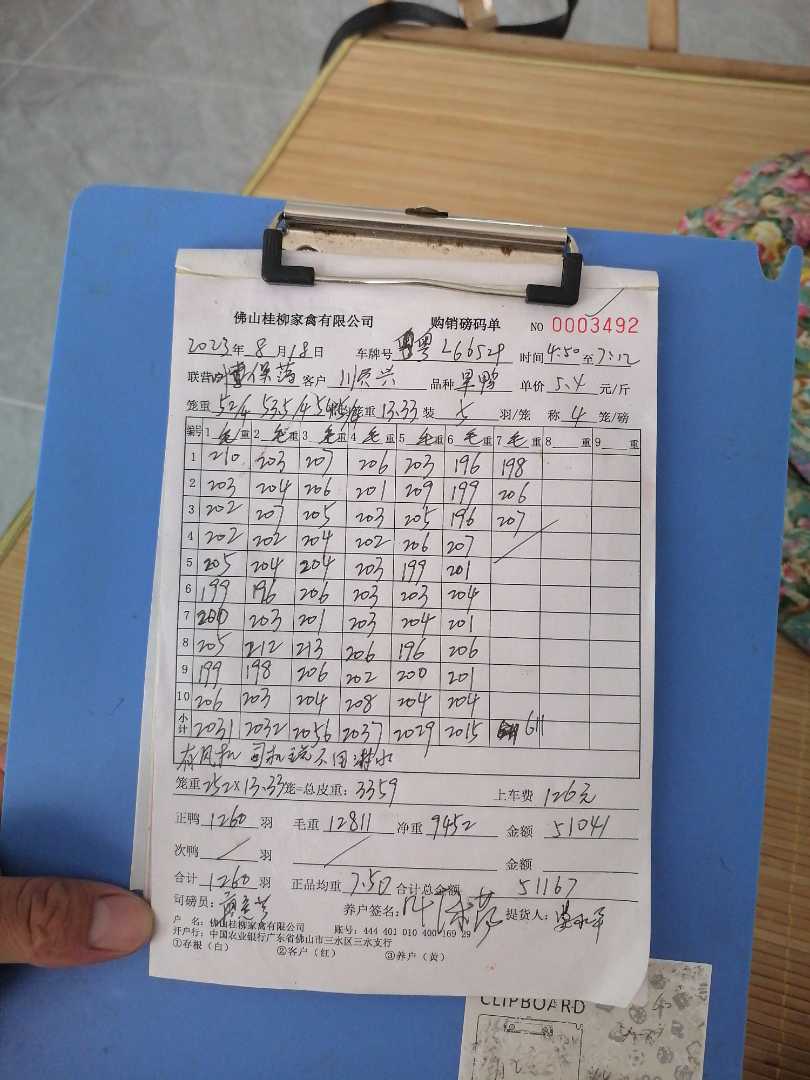 佛山桂柳家禽有限公司 购销磅码单 NO 0003492
2023年8月18日 车牌号 粤L6652P 时间 4:50 至 7:12
联营 保荡 客户 川 兴 品种 果鸭 单价 5.4 元/斤
笼重 52/4 53.5/4 笼重 13.33 装 5 羽/笼 称 4 笼/磅
编号 1 毛/重 2 毛重 3 毛重 4 毛重 5 毛重 6 毛重 7 毛重 8 重 9 重
1 210 203 207 206 203 196 198
2 203 204 206 201 209 199 206
3 202 207 205 203 205 196 207
4 202 202 204 202 206 207
5 205 204 204 203 199 201
6 199 196 206 203 203 204
7 200 203 201 203 204 201
8 205 212 213 206 196 206
9 199 198 206 202 200 201
10 206 203 204 208 204 204
小计 2031 2032 2056 2037 2029 2015 611
有风机 司机说不用淋水
笼重 252×13.33 笼=总皮重: 3359 上车费 126元
正鸭 1260 羽 毛重 12811 净重 9452 金额 51041
次鸭 / 羽 / 金额
合计 1260 羽 正品均重 7.50 合计总金额 51167
司磅员: 养户签名: 叶 提货人:
户 名: 佛山桂柳家禽有限公司 账号: 444 401 010 400 169 29
开户行: 中国农业银行广东省佛山市三水区三水支行
①存根(白) ②客户(红) ③养户(黄)
CLIPBOARD